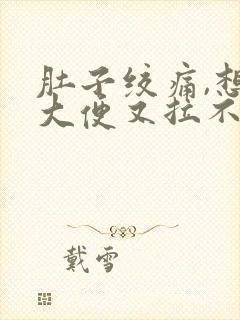 肚子绞痛,想
大便又拉不
戴雪